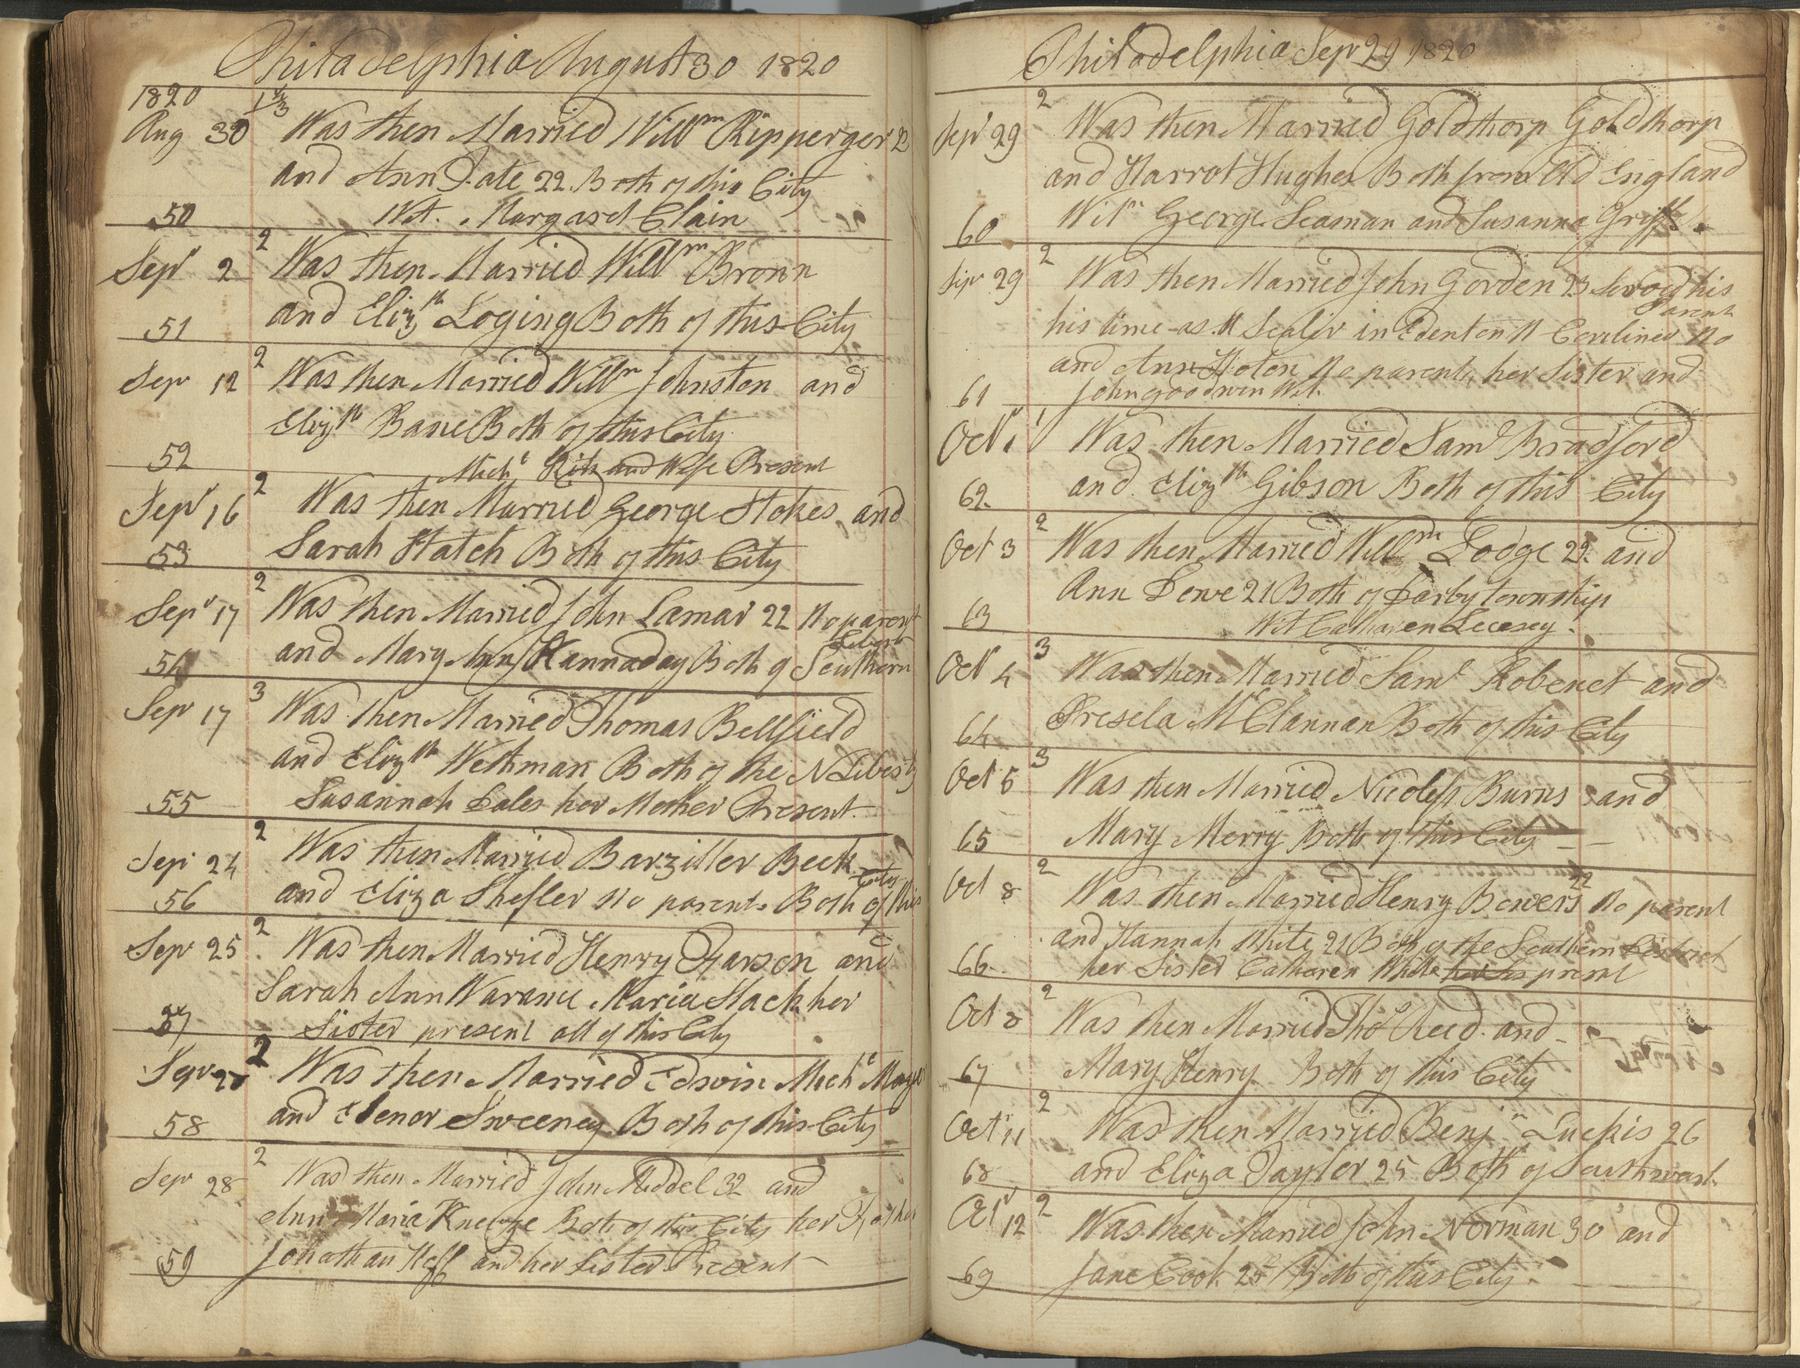 Philadelphia August 30 1820
1820
Aug 30 Was then Married Willm Ripperger 23
and Ann Date 22 Both of this City
50 Wit. Margaret Clain
2
Sepr 2 Was then Married Willm Bronn
and Elizth Loging Both of this City
51
2
Sepr 12 Was then Married Willm Johnston and
Elizth Bane Both of this City
52 Michl Ritz and Wife Present
2
Sepr 16 Was then Married George Stokes and
53 Sarah Hatch Both of this City
2
Sepr 17 Was then Married John Lamar 22 No parent
54 and Mary Ann Kannaday Both of Southern
3
Sepr 17 Was then Married Thomas Bellfield
and Elizth Wethman Both of the N Liberty
55 Susannah Bales her Mother Present
2
Sepr 24 Was then Married Barziller Beck
City
56 and Eliza Shefler No parents Both of this
2
Sepr 25 Was then Married Henry Garson and
Sarah Ann Warance Maria Hack her
57 Sister present all of this City
2
Sepr 28 Was then Married Edwin Mechl
58 and Elenor Sweeney Both of this City
2
Sepr 28 Was then Married John Middel 32 and
Ann Maria Both of this City her Father
59 Jonathan Heff and her Sister Present
Philadelphia Sepr 29 1820
2
Sepr 29 Was then Married Goldthorp Goldthorp
and Harrot Hughes Both from Old England
60 Witn George Seaman and Susanna Griffe
2
Sepr 29 Was then Married John Gorden 23 Served his
Parent
his time as a in Edenton N Carlinea No
and Ann Hoton No parents, her Sister and
61 John goodwin Wit.
Octr 1 Was then Married Saml Bradford
62 and Elizth Gibson Both of this City
2
Oct 3 Was then Married Willm Lodge 22 and
Ann Dewe 21 Both of Darby township
63 Wit Catharen Lecesey
3
Octr 4 Was then Married Saml Robenet and
64 Presela McClannan Both of this City
3
Oct 5 Was then Married Nicoless Burns and
65 Mary Merry Both of this City
2
22
Oct 8 Was then Married Henry Bowers No parent
and Hannah White 21 Both of the Southern District
66 her Sister Catharen White present
2
Oct 8 Was then Married Thos Reed and
67 Mary Henry Both of this City
2
Octr 11 Was then Married Benjn Luckis 26
68 and Eliza Taylor 25 Both of Southwark
2
Octr 12 Was then Married John Norman 30 and
69 Jane Cook 25 Both of this City